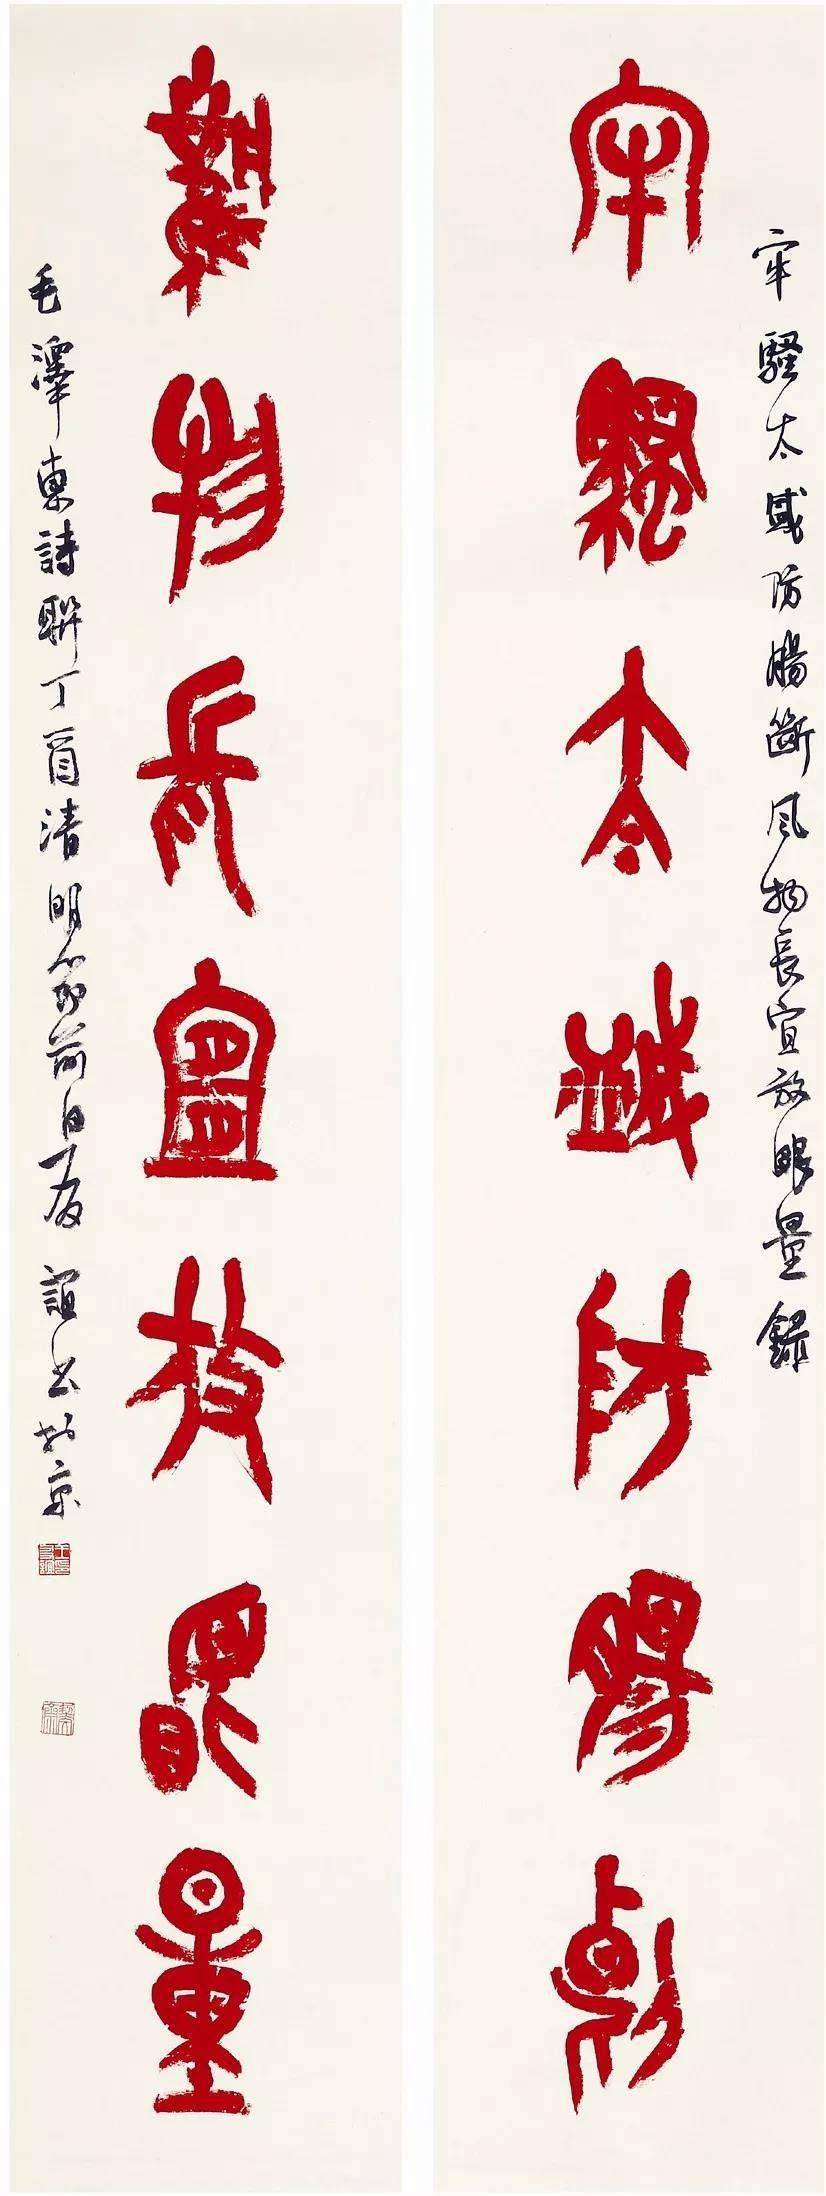 牢騷太盛防腸斷風物長宜放眼量錄
牢騷太盛防腸斷
風物長宜放眼量
毛澤東詩聯丁酉清明節前日友誼書於京